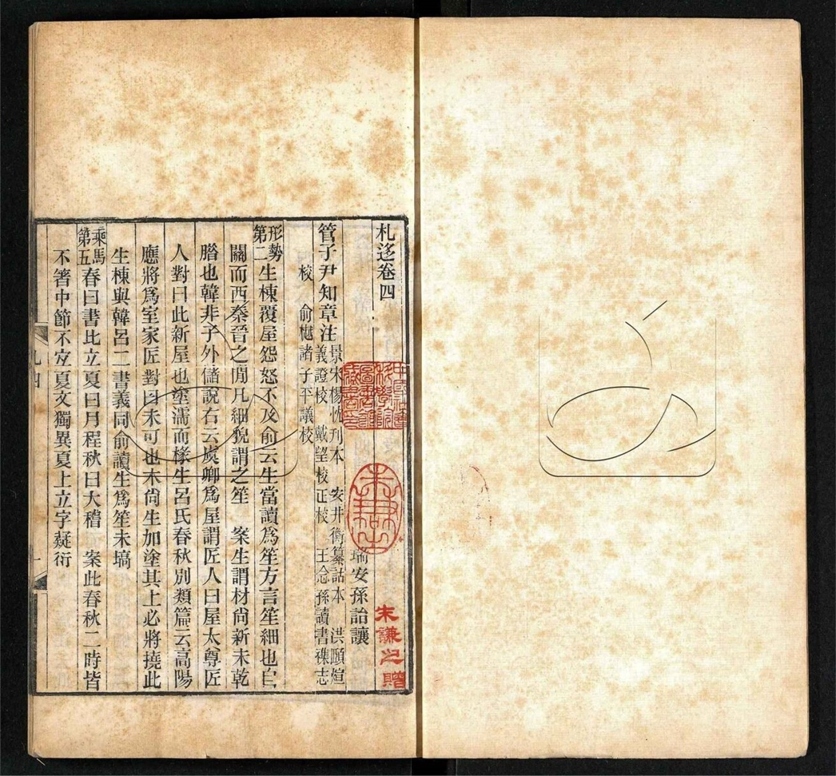 札迻卷四
瑞安孫詒讓
管子尹知章注
景宋楊忱刊本 安井衡纂詁本 洪頤煊
義證校 戴望校正校 王念孫讀書襍志
校 俞樾諸子平議校
形勢
第二
生棟覆屋怨怒不及俞云生當讀爲笙方言笙細也自
關而西秦晉之閒凡細貌謂之笙 案生謂材尚新未乾
腊也韓非子外儲說右云虞卿爲屋謂匠人曰屋太尊匠
人對曰此新屋也塗濡而椽生呂氏春秋別類篇云高陽
應將爲室家匠對曰未可也木尚生加塗其上必將撓此
生棟與韓呂二書義同俞讀生爲笙未塙
乘馬
第五
春曰書比立夏曰月程秋曰大稽 案此春秋二時皆
不箸中節不宐夏文獨異夏上立字疑衍
朱謙之贈